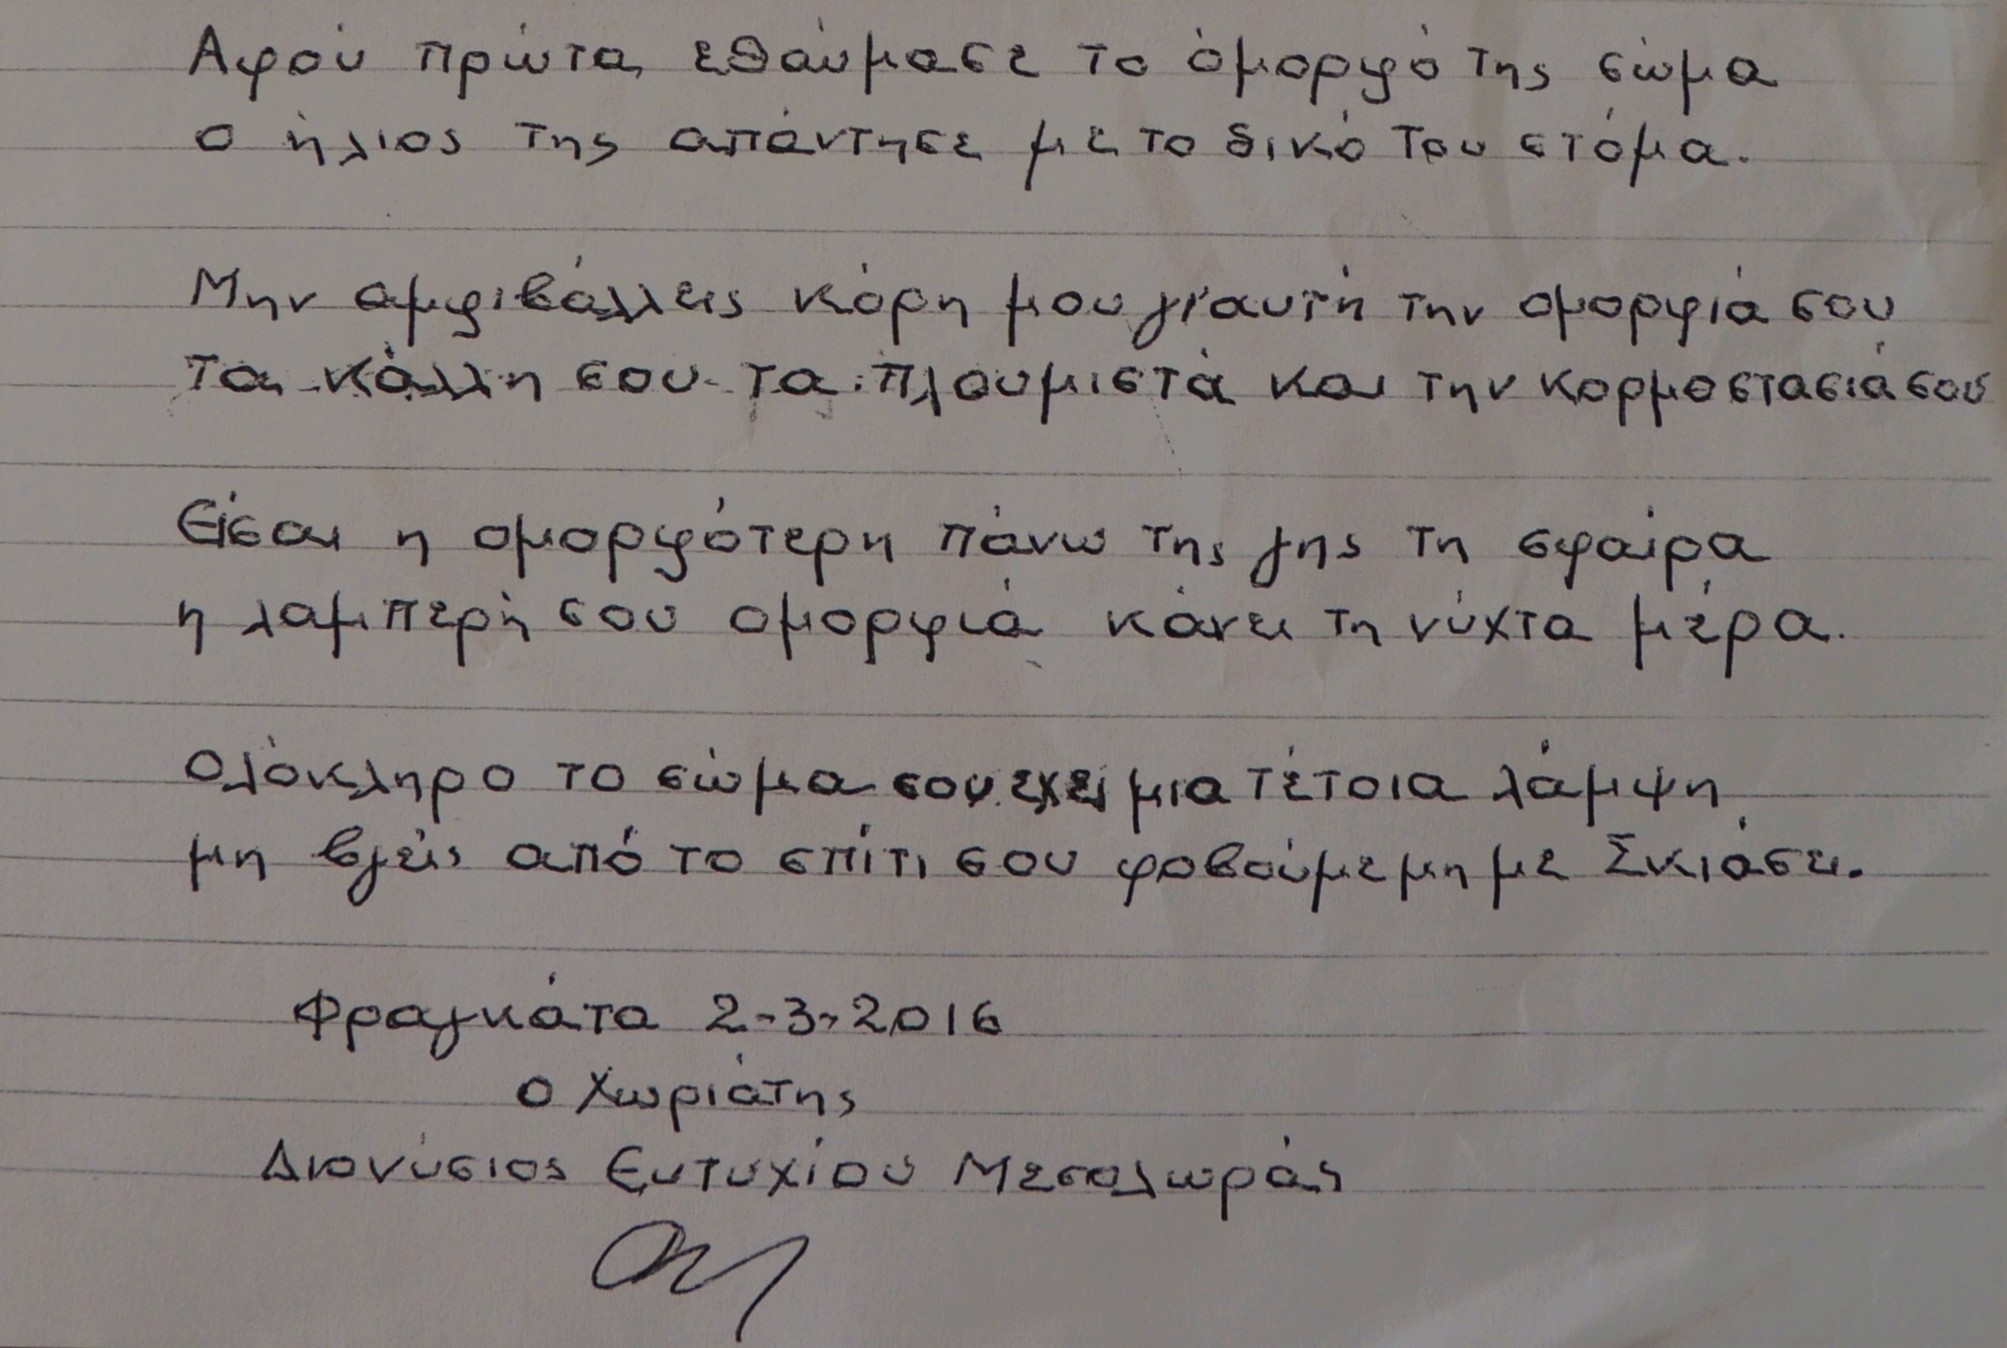 Αφού πρώτα εθαύμασε το όμορφό της σώμα
ο ήλιος της απάντησε με το δικό του στόμα.
Μην αμφιβάλλεις κόρη μου γι'αυτή την ομορφιά σου
τα κάλλη σου τα πλουμιστά και την κορμοστασιά σου
Είσαι η ομορφότερη πάνω της γης τη σφαίρα
η λαμπερή σου ομορφιά κάνει τη νύχτα μέρα.
Ολόκληρο το σώμα σου έχει μια τέτοια λάμψη
μη βγεις από το σπίτι σου φοβούμε μη με Σκιάσει.
Φραγκάτα 2-3-2016
Ο Χωριάτης
Διονύσιος Ευτυχίου Μεσολωράς